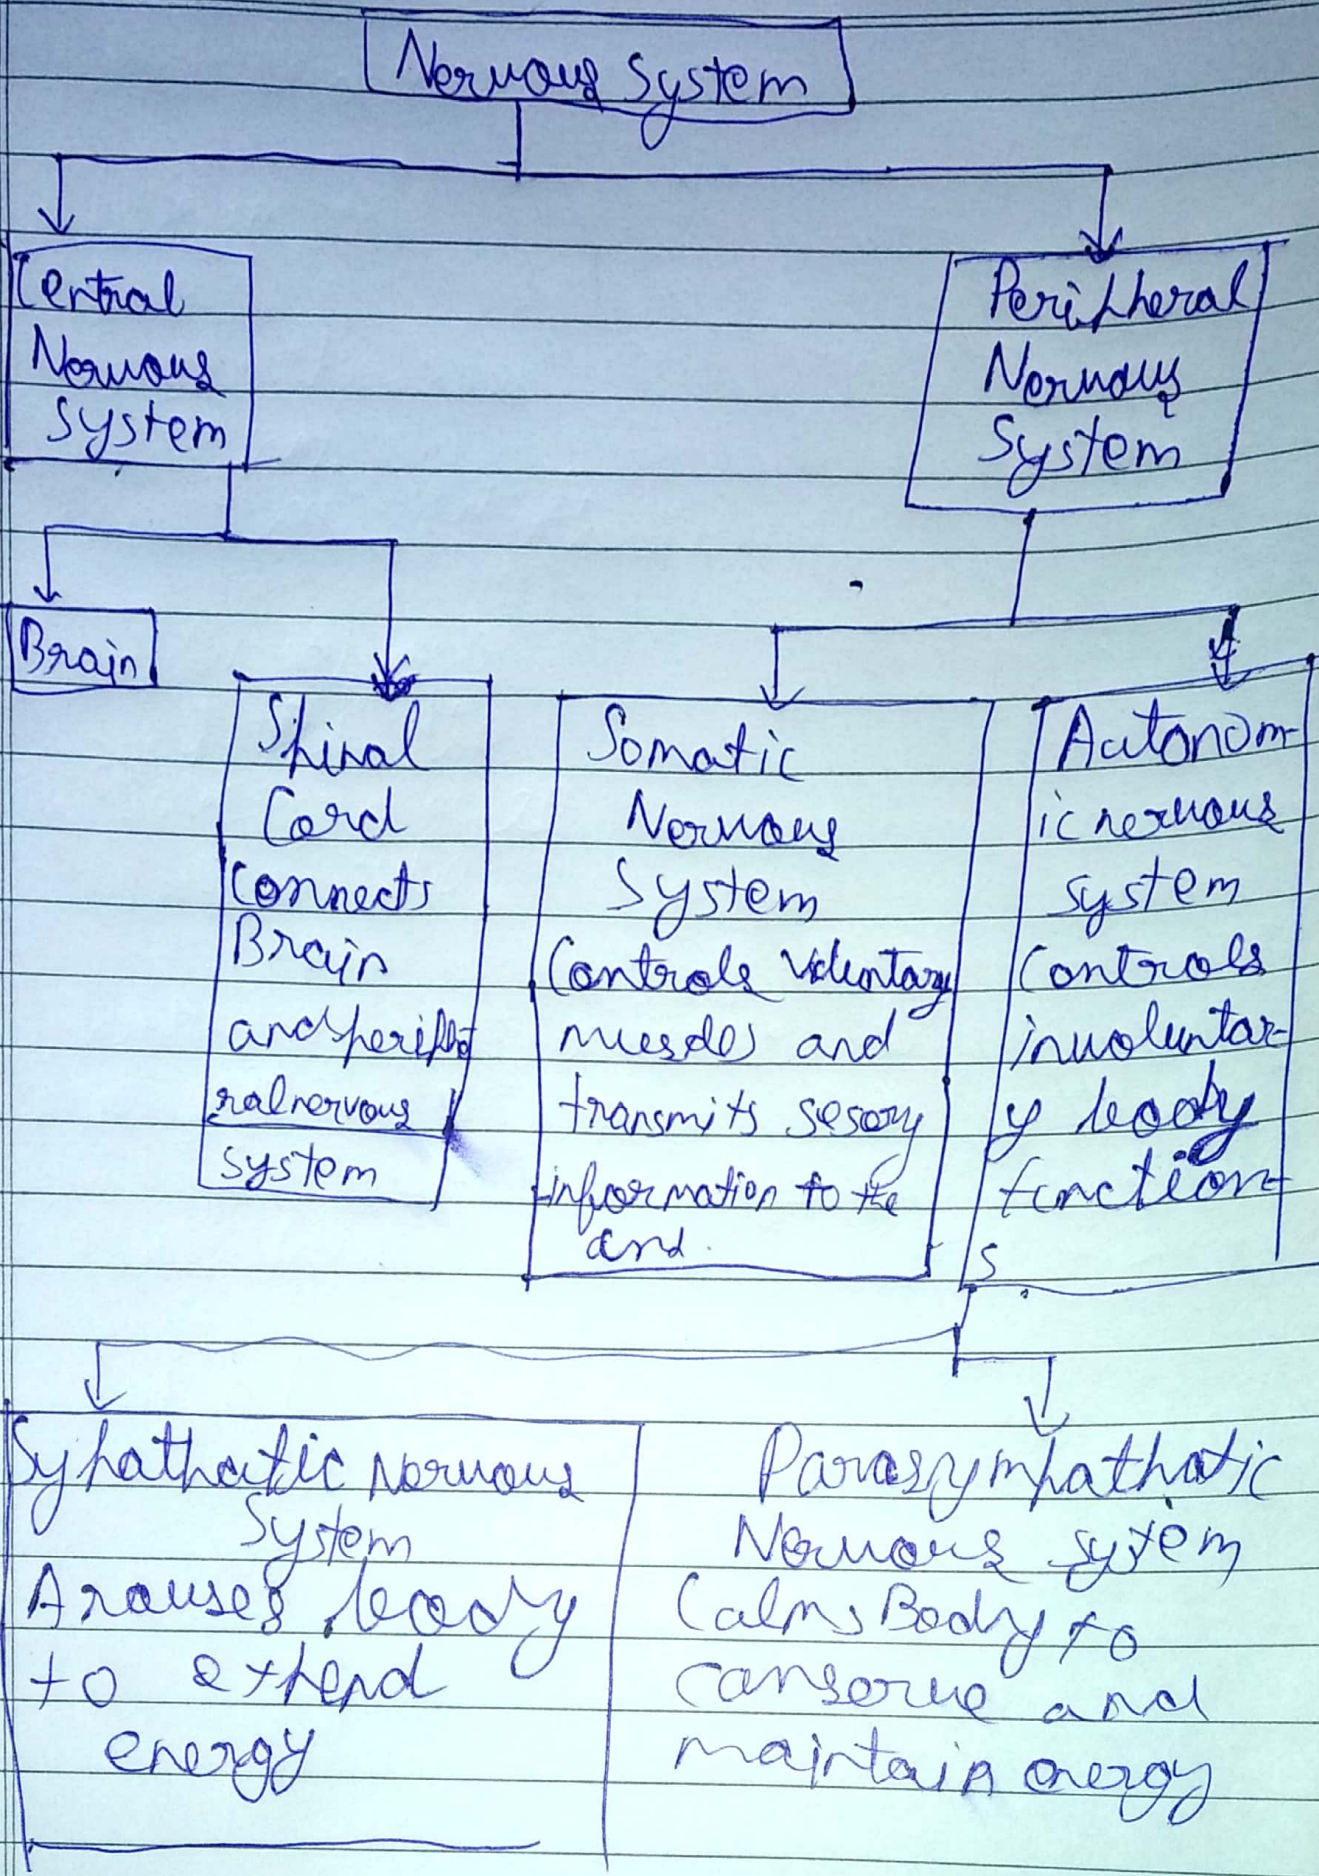 Nervous System
Central
Nervous
System
Peripheral
Nervous
System
Brain
Spinal
Cord
Connects
Brain
and periphe
ral nervous
system
Somatic
Nervous
System
Controls voluntary
muscles and
transmits sesory
information to the
and.
Autonom-
ic nervous
system
Controls
involuntar-
y body
function-
s
Sypathatic Nervous
System
Arouses body
to expend
energy
Parasympathatic
Nervous sytem
Calms Body to
conserve and
maintain energy